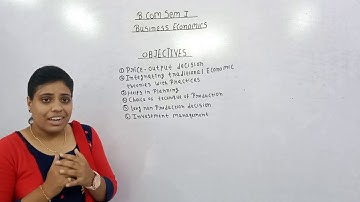 B.Com Sem I
Business Economics
OBJECTIVES
① Price-output decision
② Integrating traditional Economic
theories with Practices
③ Helps in Planning
④ Choice of technique of Production
⑤ long run Production decision
⑥ Investment management